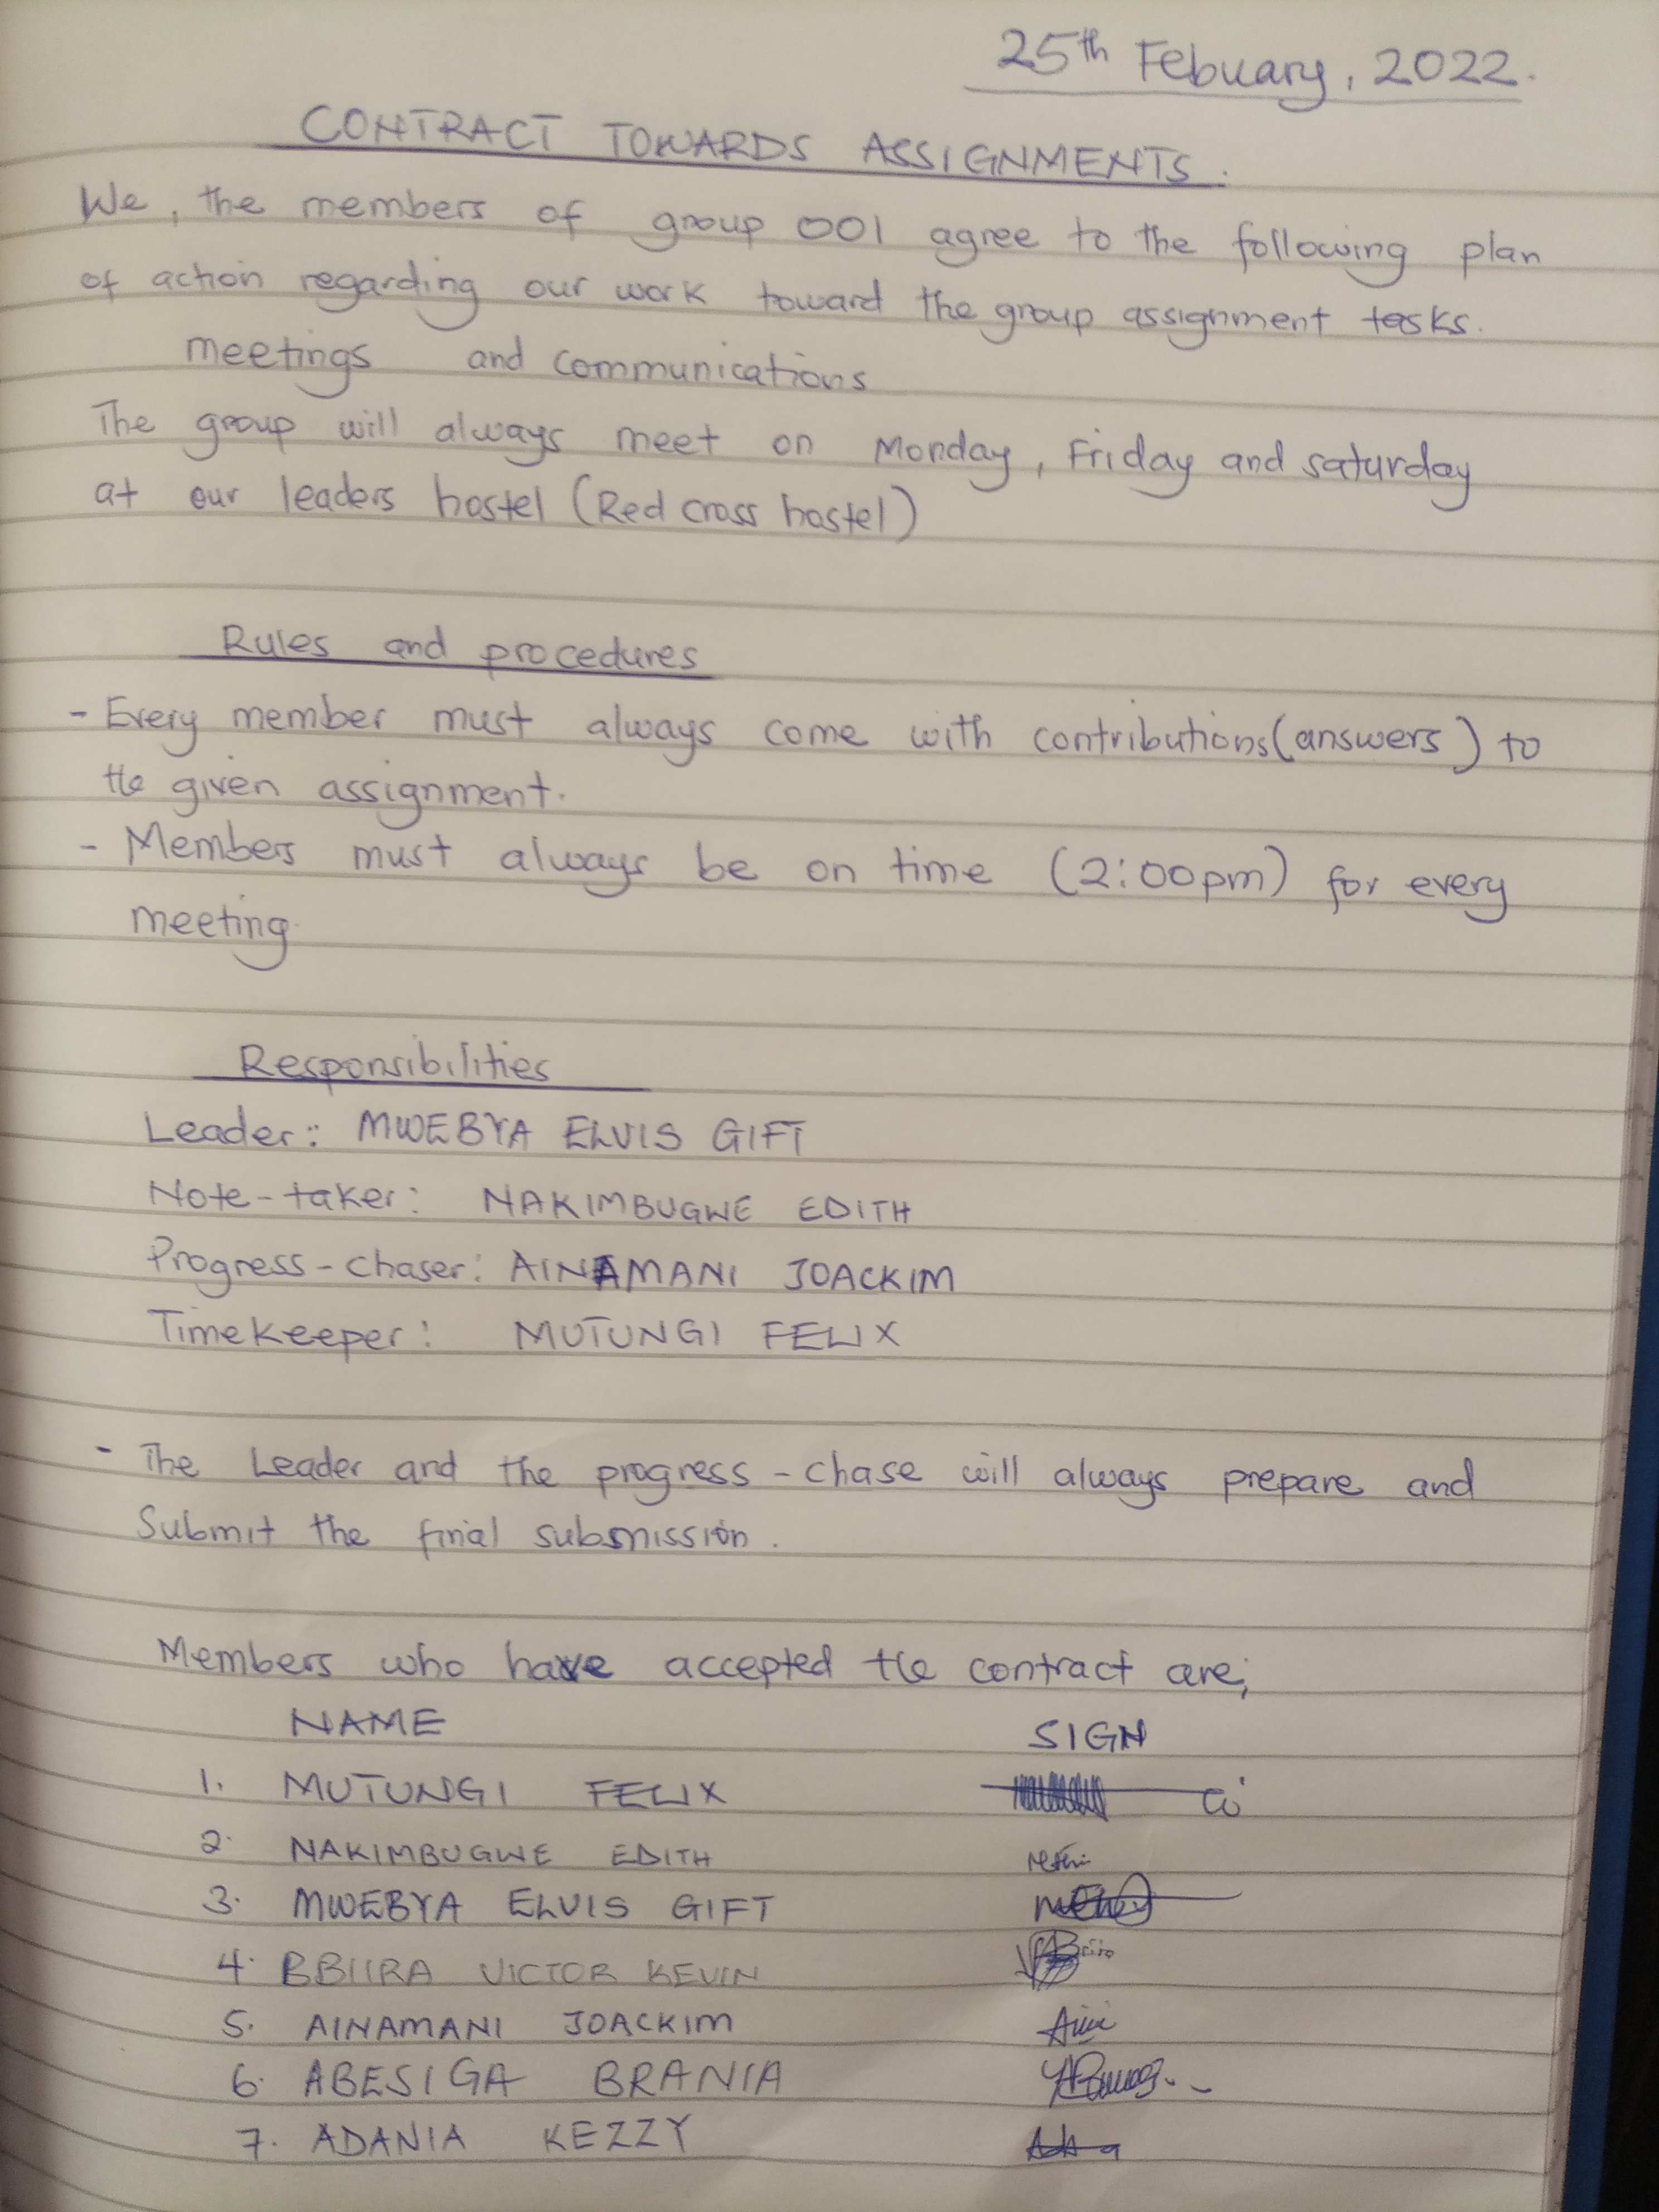 25th Febuary, 2022.
CONTRACT TOWARDS ASSIGNMENTS.
We, the members of group 001 agree to the following plan
of action regarding our work toward the group assignment tasks.
meetings and communications
The group will always meet on Monday, Friday and saturday
at our leaders hostel (Red cross hostel)
Rules and procedures
- Every member must always come with contributions(answers) to
the given assignment.
- Members must always be on time (2:00pm) for every
meeting.
Responsibilities
Leader: MWEBYA ELVIS GIFT
Note-taker: NAKIMBUGWE EDITH
Progress-chaser: AINAMANI JOACKIM
Timekeeper: MUTUNGI FELIX
- The Leader and the progress-chase will always prepare and
Submit the final submission.
Members who have accepted the contract are;
NAME SIGN
1. MUTUNGI FELIX
2. NAKIMBUGWE EDITH
3. MWEBYA ELVIS GIFT
4. BBIIRA VICTOR KEVIN
5. AINAMANI JOACKIM
6. ABESIGA BRANIA
7. ADANIA KEZZY